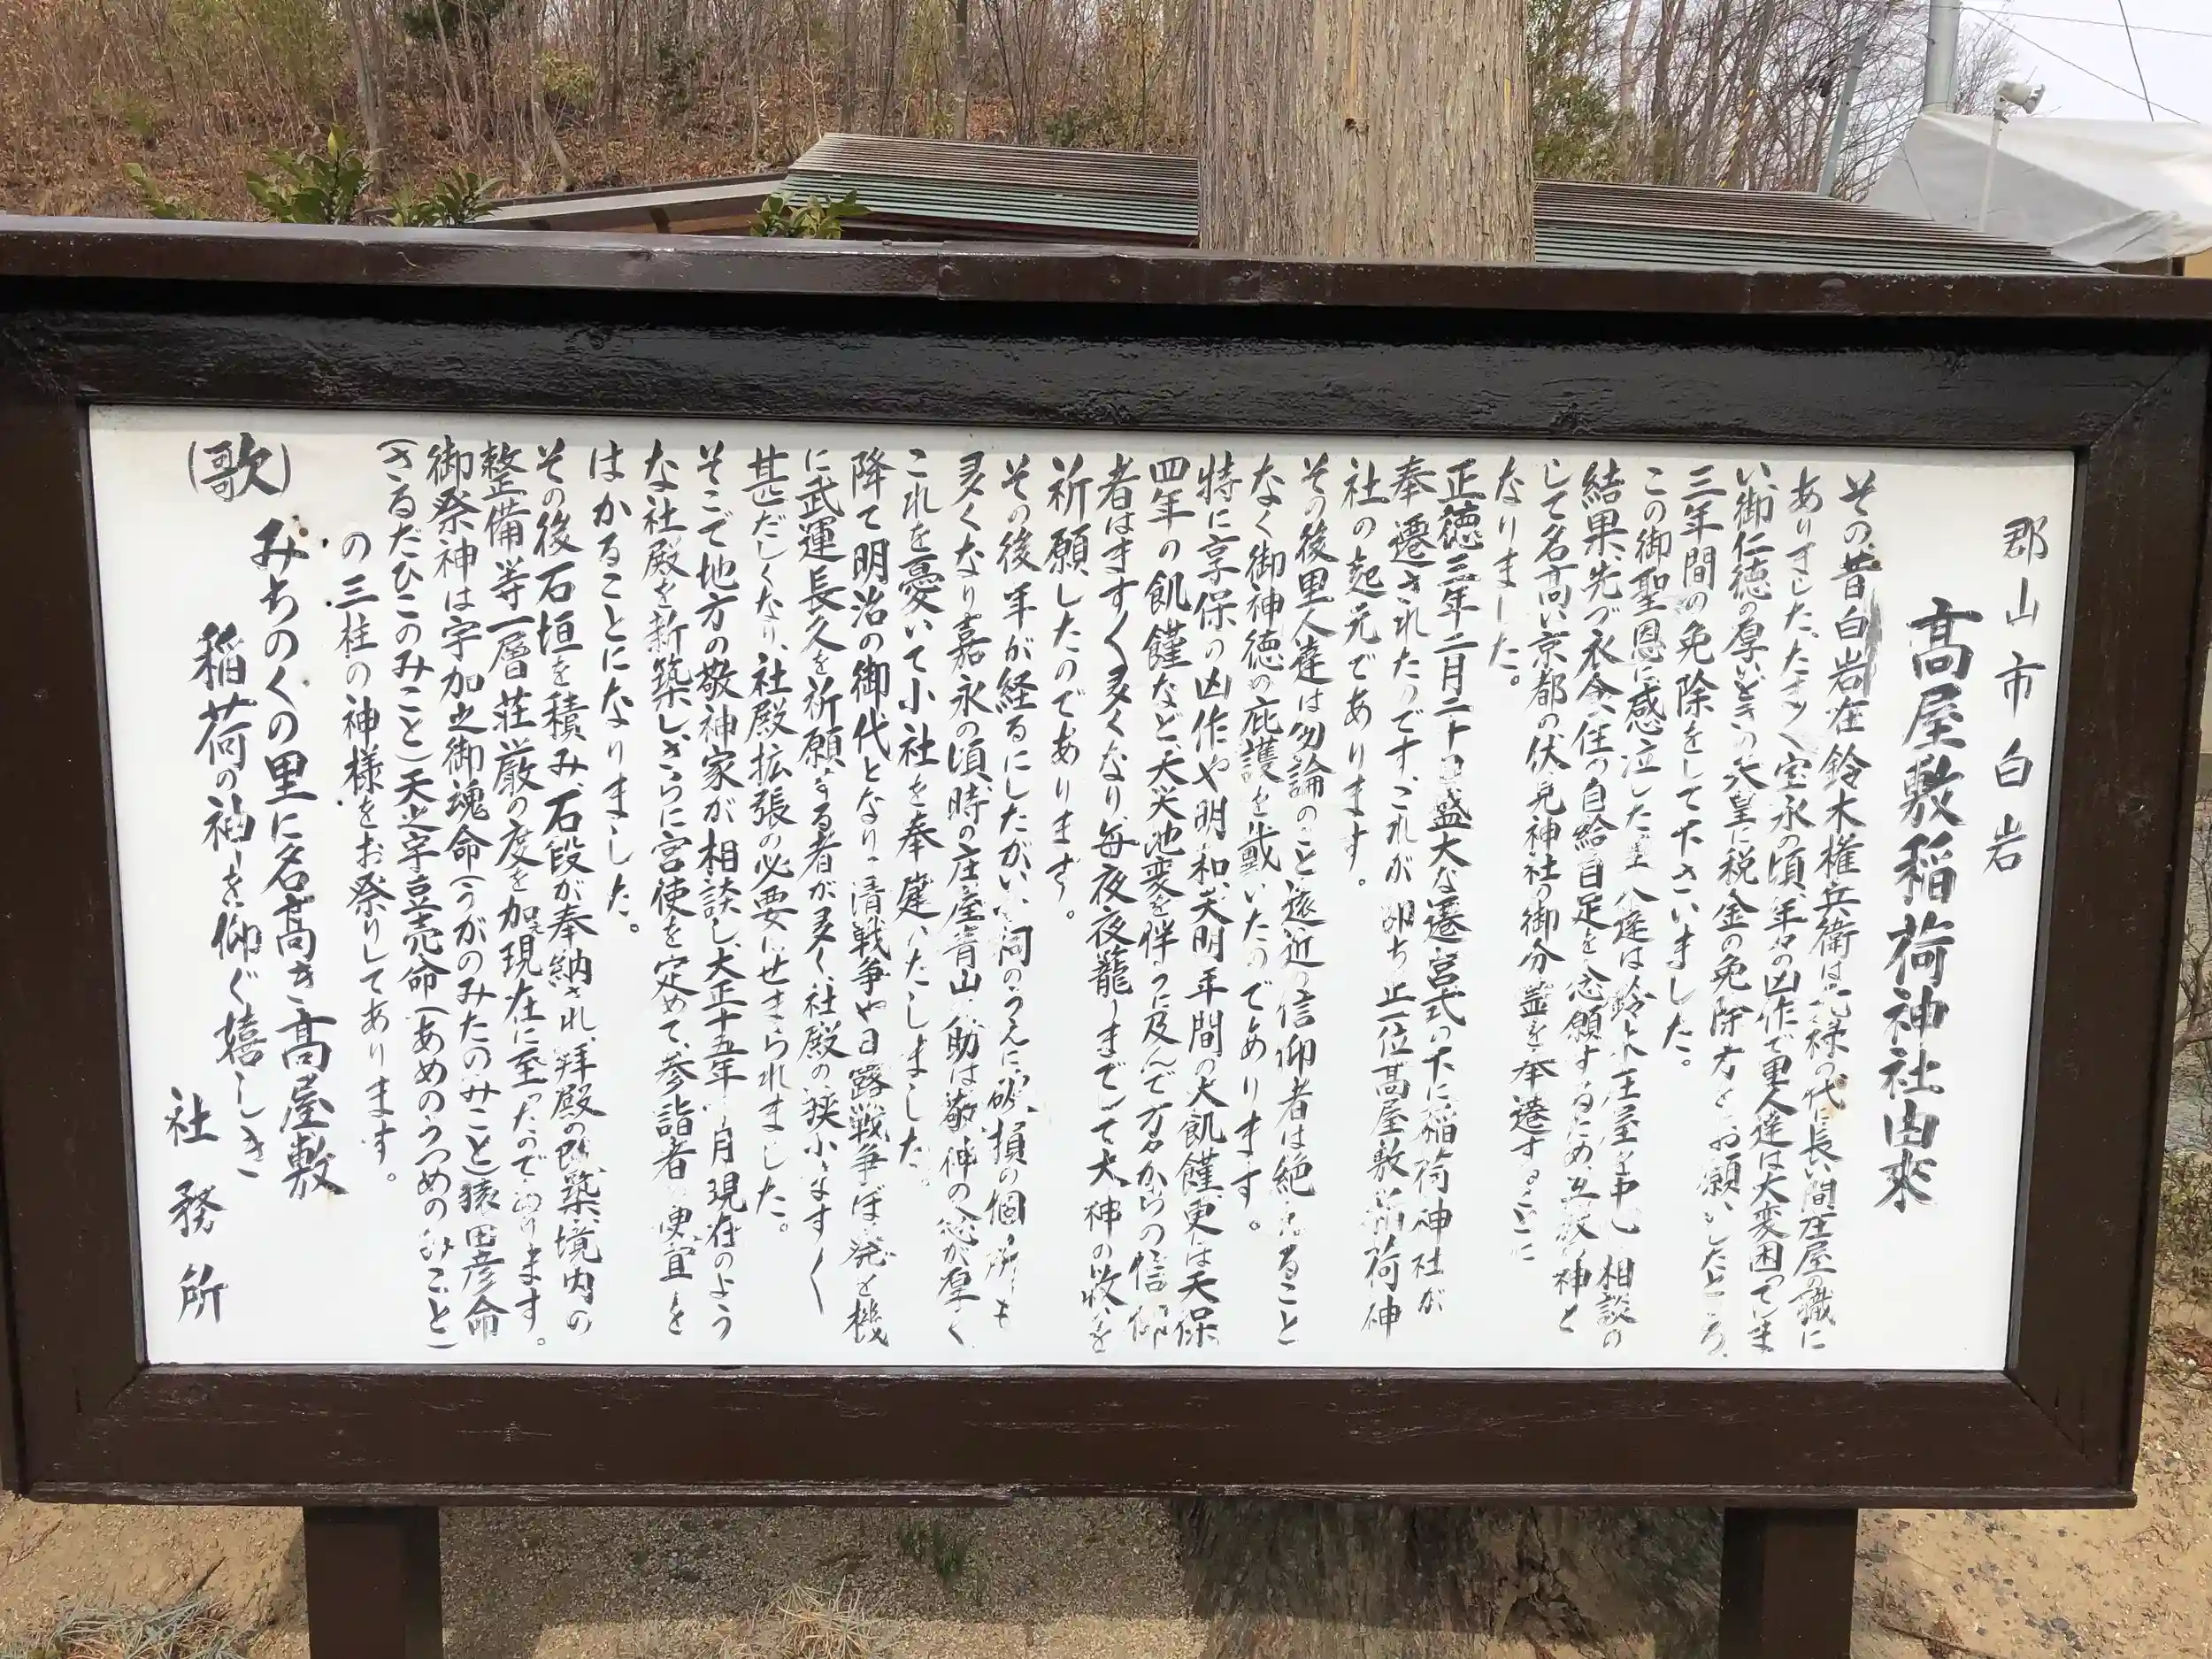 郡山市白岩
高屋敷稲荷神社由来
その昔白岩在鈴木権兵衛は元禄の代に長い間庄屋の職に
ありました、たまたま宝永の頃、年々の凶作で里人達は大変困っていま
い御仁徳の厚いときの天皇に税金の免除方をお願いしたところ、
三年間の免除をして下さいました。
この御聖恩に感泣した里人達は鈴木庄屋を中心に相談の
結果、先づ衣食住の自給自足を念願するため、五穀の神と
して名高い京都の伏見神社の御分霊を奉遷することに
なりました。
正徳三年二月二十日盛大な遷宮式の下に稲荷神社が
奉遷されたのです、これが即ち正一位高屋敷稲荷神
社の起元であります。
その後里人達は勿論のこと遠近の信仰者は絶えること
なく御神徳の庇護を戴いたのであります。
特に享保の凶作や明和、天明年間の大飢饉、更には天保
四年の飢饉など、天災地変を伴うに及んで方々からの信仰
者はますく多くなり、毎夜夜籠りまでして大神の救いを
祈願したのであります。
その後年が経るにしたがい、祠のうえに破損の個所も
多くなり嘉永の頃、時の庄屋青山 助は敬神の念が厚く
これを憂いて小社を奉建いたしました。
降て明治の御代となり日清戦争や日露戦争ぼっ発を機
に武運長久を祈願する者が多く、社殿の狭小ますく
甚だしくなり、社殿拡張の必要にせまられました。
そこで地方の敬神家が相談し、大正十五年 月現在のよう
な社殿を新築し、さらに宮使を定めて、参詣者の便宜を
はかることになりました。
その後石垣を積み、石段が奉納され、拝殿の改築、境内の
整備等一層荘厳の度を加え現在に至ったのであります。
御祭神は宇加之御魂命(うがのみたのみこと)猿田彦命
(さるだひこのみこと)天之宇豆売命(あめのうづめのみこと)
の三柱の神様をお祭りしてあります。
(歌)みちのくの里に名高き高屋敷
稲荷の袖を仰ぐ嬉しき
社務所